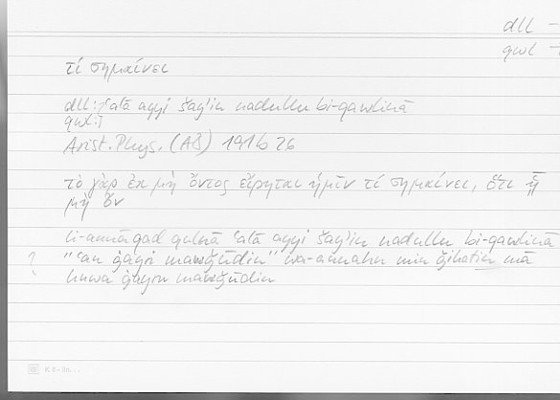 dll –
qwl –
τί σημαίνει
dll: ʿalā ayyi šayʾin nadullu bi-qawlinā
qwl:
Arist. Phys. (AΘ) 191b 26
τὸ γὰρ ἐκ μὴ ὄντος εἴρηται ἡμῖν τί σημαίνει, ὅτι ᾗ
μὴ ὄν
li-annā qad qulnā ʿalā ayyi šayʾin nadullu bi-qawlinā
? "ʿan ġayri mawǧūdin" wa-annahu min ǧihatin mā
huwa ġayru mawǧūdin